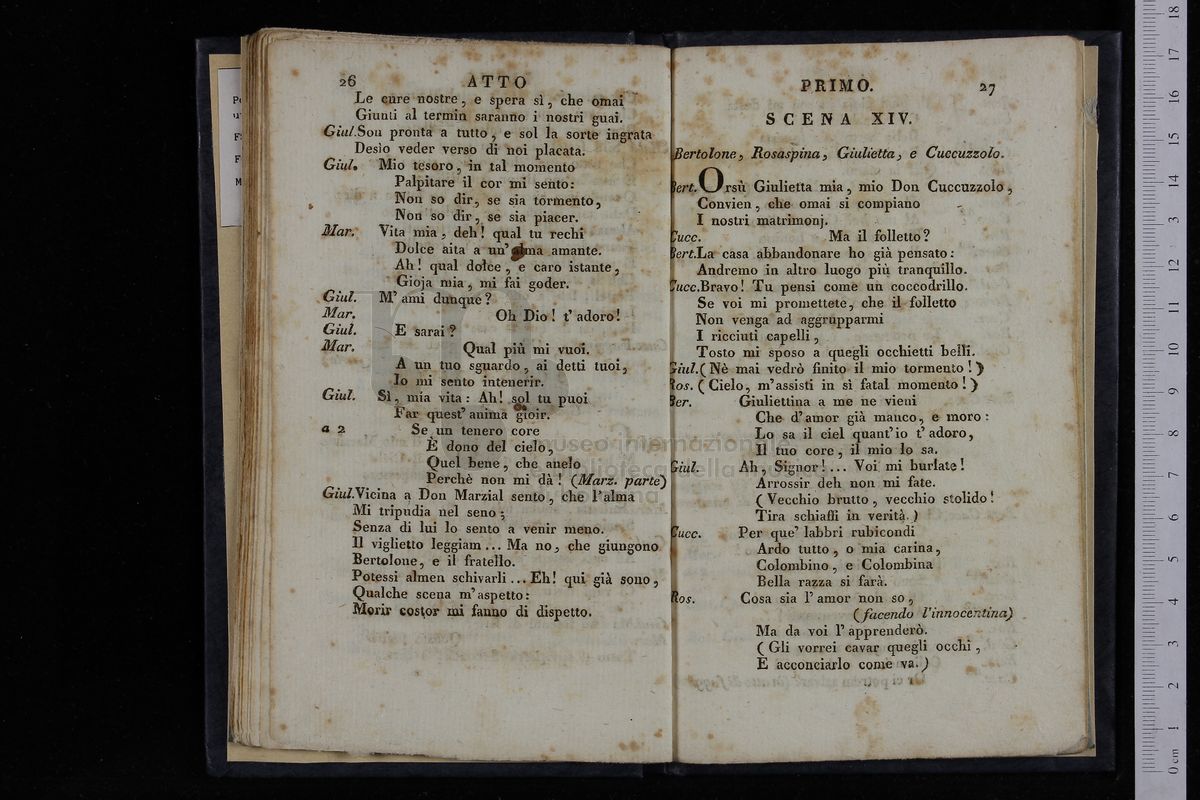 26 ATTO
Le cure nostre, e spera sì, che omai
Giunti al termin saranno i nostri guai.
Giul. Son pronta a tutto, e sol la sorte ingrata
Desìo veder verso di noi placata.
Giul. Mio tesoro, in tal momento
Palpitare il cor mi sento:
Non so dir, se sia tormento,
Non so dir, se sia piacer.
Mar. Vita mia, deh! qual tu rechi
Dolce aita a un' alma amante.
Ah! qual dolce, e caro istante,
Gioja mia, mi fai goder.
Giul. M' ami dunque?
Mar. Oh Dio! t' adoro!
Giul. E sarai?
Mar. Qual più mi vuoi.
A un tuo sguardo, ai detti tuoi,
Io mi sento intenerir.
Giul. Sì, mia vita: Ah! sol tu puoi
Far quest' anima gioir.
a 2 Se un tenero core
È dono del cielo,
Quel bene, che anelo
Perchè non mi dà! (Marz. parte)
Giul. Vicina a Don Marzial sento, che l'alma
Mi tripudia nel seno;
Senza di lui lo sento a venir meno.
Il viglietto leggiam... Ma no, che giungono
Bertolone, e il fratello.
Potessi almen schivarli... Eh! qui già sono,
Qualche scena m' aspetto:
Morir costor mi fanno di dispetto.
PRIMO. 27
SCENA XIV.
Bertolone, Rosaspina, Giulietta, e Cuccuzzolo.
Bert. Orsù Giulietta mia, mio Don Cuccuzzolo,
Convien, che omai si compiano
I nostri matrimonj.
Cucc. Ma il folletto?
Bert. La casa abbandonare ho già pensato:
Andremo in altro luogo più tranquillo.
Cucc. Bravo! Tu pensi come un coccodrillo.
Se voi mi promettete, che il folletto
Non venga ad aggrupparmi
I ricciuti capelli,
Tosto mi sposo a quegli occhietti belli.
Giul. (Nè mai vedrò finito il mio tormento!)
Ros. (Cielo, m'assisti in sì fatal momento!)
Ber. Giuliettina a me ne vieni
Che d'amor già manco, e moro:
Lo sa il ciel quant'io t' adoro,
Il tuo core, il mio lo sa.
Giul. Ah, Signor!... Voi mi burlate!
Arrossir deh non mi fate.
(Vecchio brutto, vecchio stolido!
Tira schiaffi in verità.)
Cucc. Per que' labbri rubicondi
Ardo tutto, o mia carina,
Colombino, e Colombina
Bella razza si farà.
Ros. Cosa sia l' amor non so,
(facendo l'innocentina)
Ma da voi l' apprenderò.
(Gli vorrei cavar quegli occhi,
E acconciarlo come va.)